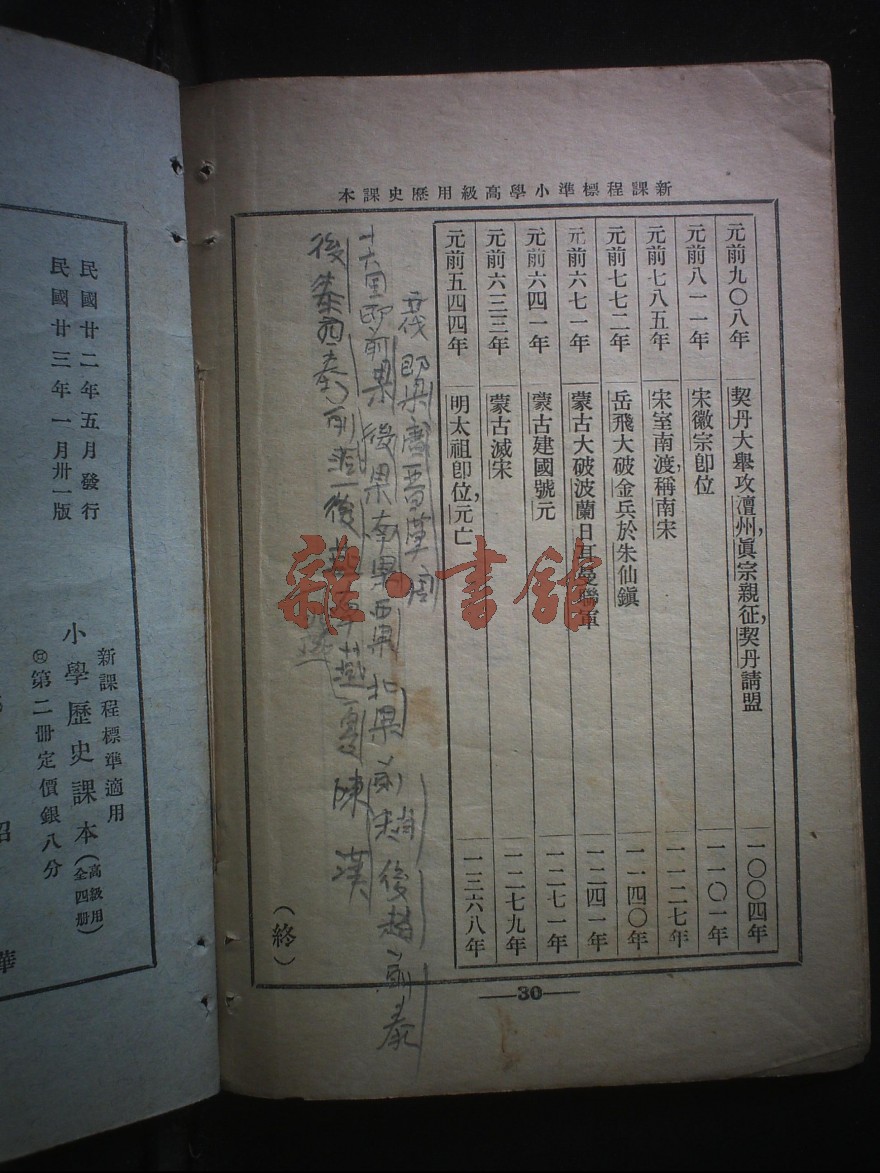 新課程標準小學高級用歷史課本
元前九〇八年 契丹大舉攻澶州，眞宗親征，契丹請盟 一〇〇四年
元前八一一年 宋徽宗卽位 一一〇一年
元前七八五年 宋室南渡，稱南宋 一一二七年
元前七七二年 岳飛大破金兵於朱仙鎮 一一四〇年
元前六七一年 蒙古大破波蘭日耳曼聯軍 一二四一年
元前六四一年 蒙古建國號元 一二七一年
元前六三三年 蒙古滅宋 一二七九年
元前五四四年 明太祖卽位，元亡 一三六八年
五代即梁唐晋漢周
十六囯即前凉後凉南凉西凉北凉前趙後趙前秦
後秦西秦前燕後燕南燕夏陳漢
（終）
—30—
雜·書館
新課程標準適用
小學歷史課本（高級用全四册）
第二冊定價銀八分
民國廿二年五月發行
民國廿三年一月卅一版